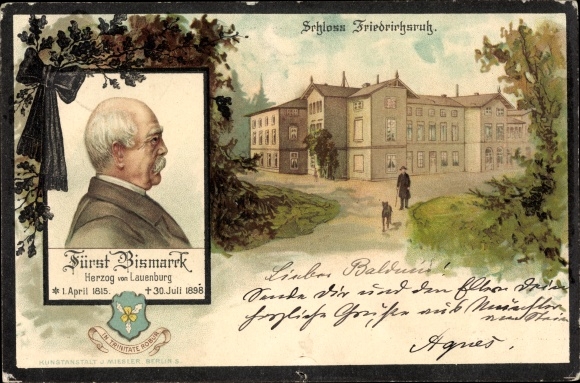 Schloss Friedrichsruh.
Fürst Bismarck
Herzog von Lauenburg
* 1. April 1815. † 30. Juli 1898
IN TRINITATE ROBUR
KUNSTANSTALT J. MIESLER, BERLIN S.
Lieber Balduin!
Sende Dir und den Eltern
herzliche Grüsse aus
Agnes.